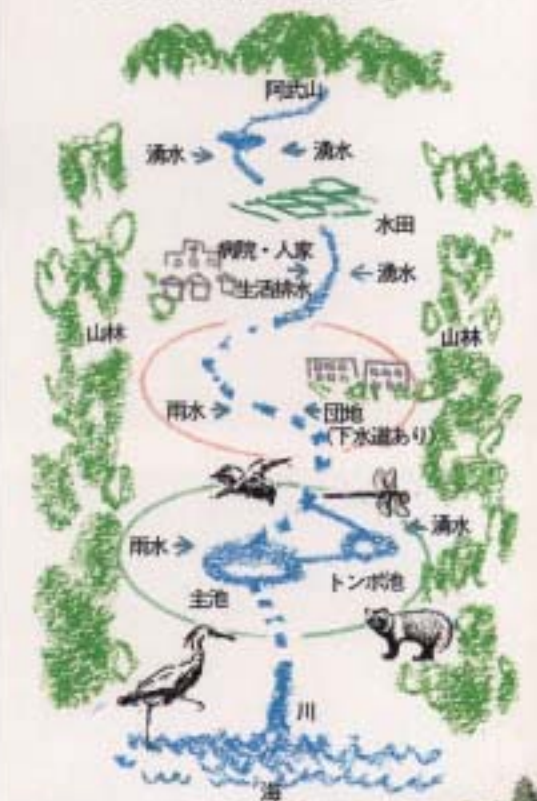 阿武山
湧水
湧水
水田
病院・人家
生活排水
湧水
山林
山林
雨水
団地
(下水道あり)
湧水
雨水
主池
トンボ池
川
海